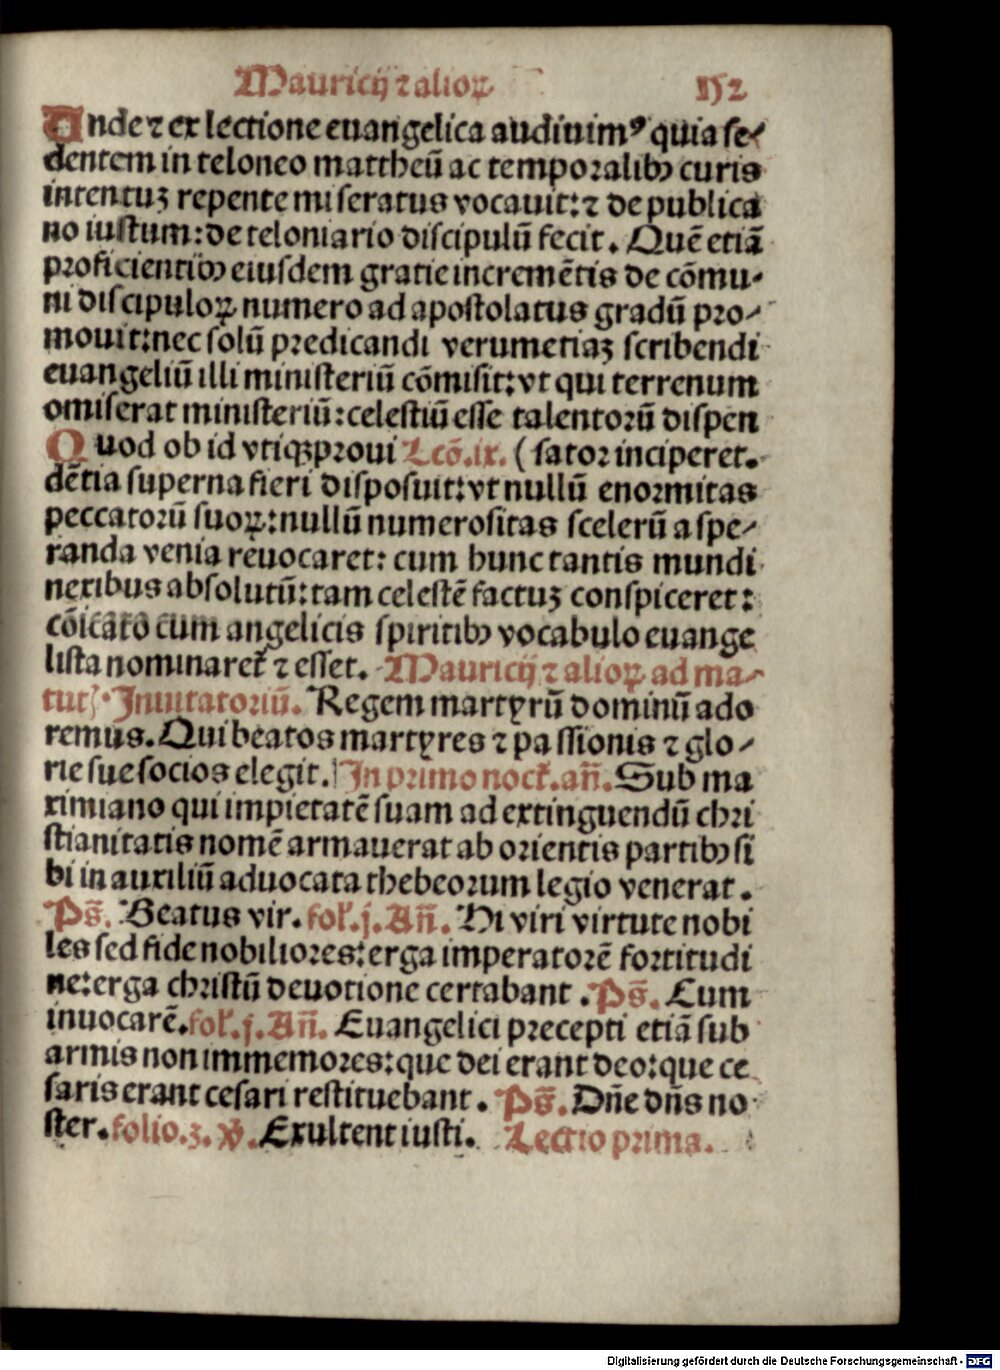 Mauricij ⁊ alioꝝ 152
Unde ⁊ ex lectione euangelica audiuimꝰ quia se⸗
dentem in teloneo mattheū ac temporalibꝫ curis
intentuꝫ repente miseratus vocauit: ⁊ de publica
no iustum: de teloniario discipulū fecit. Quē etiā
proficientibꝫ eiusdem gratie incremētis de cōmu⸗
ni discipuloꝝ numero ad apostolatus gradū pro⸗
mouit: nec solū predicandi verumetiaꝫ scribendi
euangeliū illi ministeriū cōmisit: vt qui terrenum
omiserat ministeriū: celestiū esse talentorū dispen
Quod ob id vtiqꝫ proui Lcō.ix. ( sator inciperet.
dētia superna fieri disposuit: vt nullū enormitas
peccatorū suoꝝ: nullū numerositas scelerū a spe⸗
randa venia reuocaret: cum hunc tantis mundi
nexibus absolutū: tam celestē factuꝫ conspiceret:
cōicato cum angelicis spiritibꝫ vocabulo euange
lista nominaret̄ ⁊ esset. Mauricij ⁊ alioꝝ ad ma⸗
tut. Inuitatoriū. Regem martyrū dominū ado
remus. Qui beatos martyres ⁊ passionis ⁊ glo⸗
rie sue socios elegit. In primo noct̄. añ. Sub ma
ximiano qui impietatē suam ad extinguendū chri
stianitatis nomē armauerat ab orientis partibꝫ si
bi in auxiliū aduocata thebeorum legio venerat.
Ps̄. Beatus vir. fol̄. j. Añ. Hi viri virtute nobi
les sed fide nobiliores: erga imperatorē fortitudi
ne: erga christū deuotione certabant. Ps̄. Cum
inuocarē. fol̄. j. Añ. Euangelici precepti etiā sub
armis non immemores: que dei erant deo: que ce
saris erant cesari restituebant. Ps̄. Dñe dñs no
ster. folio. 3. ℣. Exultent iusti. Lectio prima.
Digitalisierung gefördert durch die Deutsche Forschungsgemeinschaft - DFG